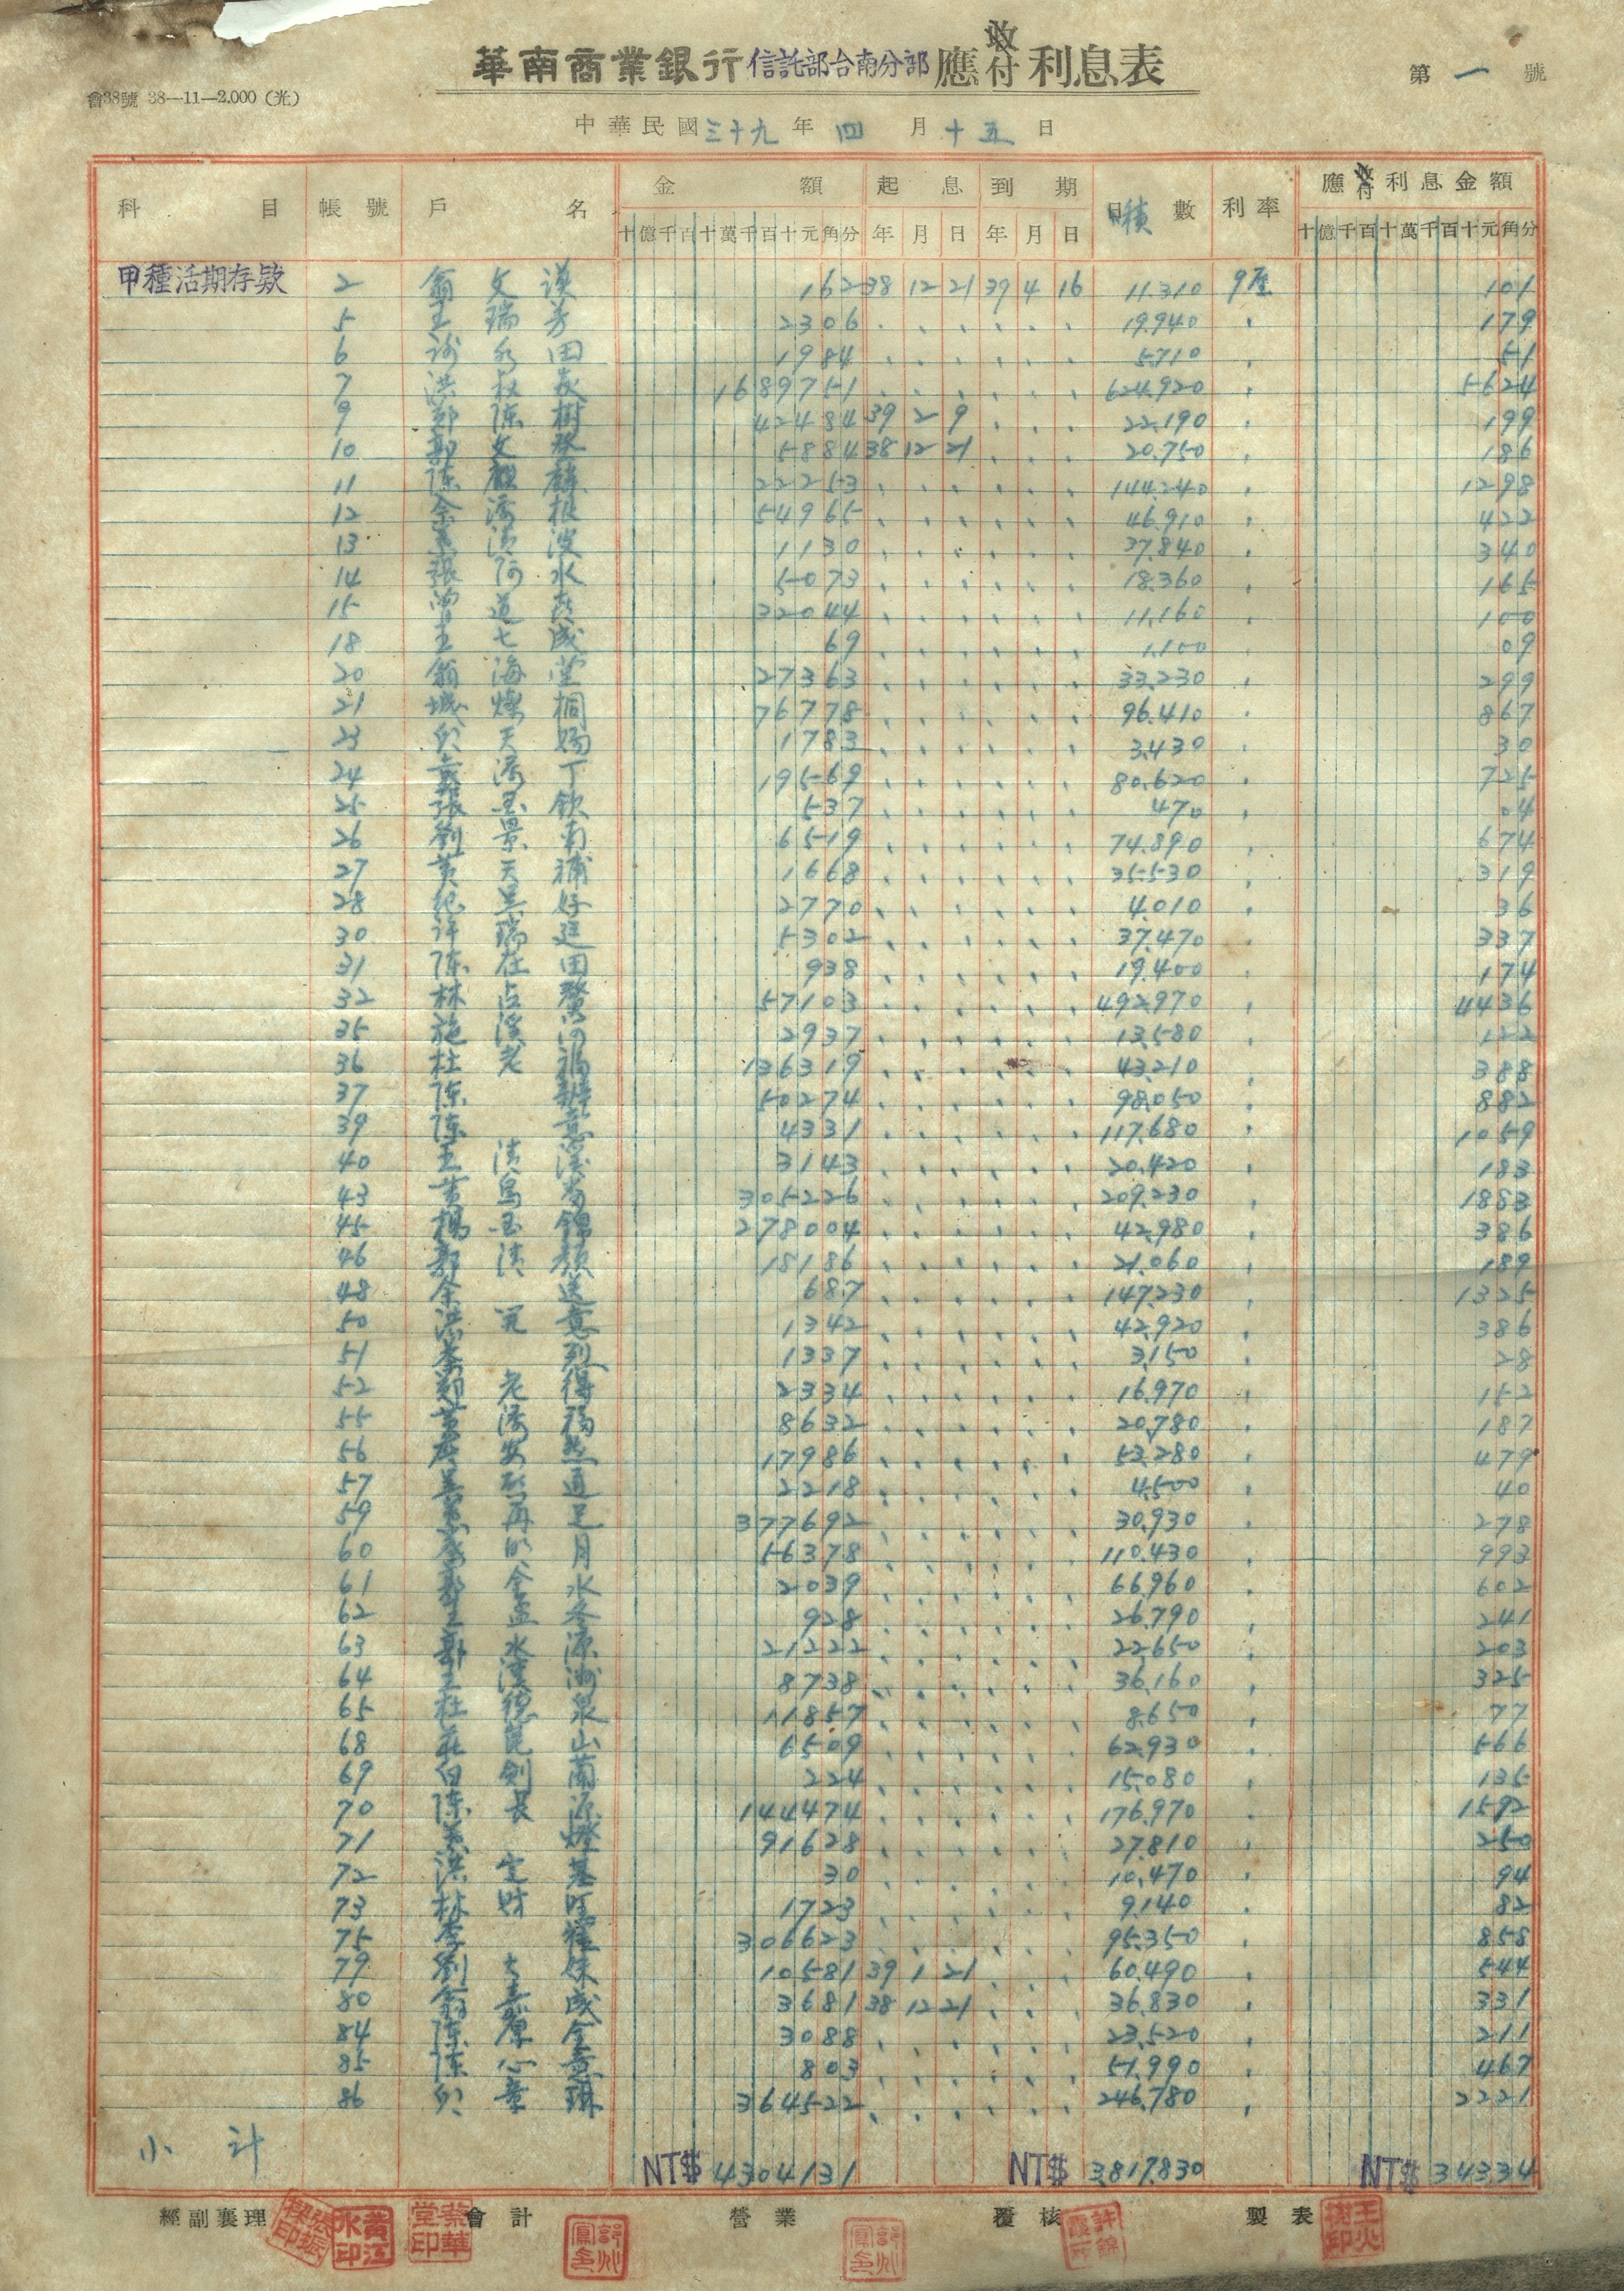 華南商業銀行信託部台南分部應收付利息表
第一號
會38號 38—11—2.000 (光)
中華民國三十九年四月十五日
科目 帳號 戶名 金額 起息 到期 日積數 利率 應收付利息金額
十億千百十萬千百十元角分 年月日 年月日 十億千百十萬千百十元角分
甲種活期存款 2 翁文謨 162 38 12 21 39 4 16 11.310 9厘 101
5 王瑞芳 2306 19.940 179
6 謝永田 1984 5.710 51
7 洪 1689751 624.920 5624
9 鄭陳樹 42484 39 2 9 22.190 199
10 郭文 5884 38 12 21 20.750 186
11 陳麒麟 22253 144.240 1298
12 余添根 54965 46.910 422
13 清波 1130 37.840 340
14 張阿水 5073 18.360 165
15 曾道 32044 11.160 100
18 王七成 69 1.100 09
20 翁海堂 27363 33.230 299
21 城燦桐 76778 96.410 867
23 天 1783 3.430 30
24 添丁 19569 80.620 725
25 張玉欽 537 470 04
26 劉景南 6519 74.890 674
27 黃天補 1668 35.530 319
28 好 2770 4.010 36
30 許瑞廷 5302 37.470 337
31 陳在田 938 19.400 174
32 林占鰲 57103 492.970 4436
35 施溪河 2937 13.580 122
36 杜老福 136319 43.210 388
37 陳 50274 98.050 882
39 陳意 4331 117.680 1059
40 王清溪 3143 20.420 183
43 黃 305226 209.230 1883
45 楊玉錦 278004 42.980 386
46 郭清顏 18186 21.060 189
48 余送 687 147.230 1325
50 洪 意 1342 42.920 386
51 李烈 1337 3.150 28
52 鄭老得 2334 16.970 152
55 黃添福 8632 20.780 187
56 安然 17986 53.280 479
57 通 2218 4.500 40
59 再足 377692 30.930 278
60 月 56378 110.430 993
61 郭金水 2039 66.960 602
62 王孟冬 928 26.790 241
63 郭水源 21222 22.650 203
64 王漢洲 8738 36.160 325
65 杜德泉 11857 8.650 77
68 莊崑山 6509 62.930 566
69 白劍蘭 224 15.080 135
70 陳長源 144474 176.970 1592
71 燈 91628 27.810 250
72 洪定基 30 10.470 94
73 林財旺 1723 9.140 82
75 李 306623 95.350 858
79 劉 妹 10581 39 1 21 60.490 544
80 翁嘉成 3681 38 12 21 36.830 331
84 陳厚全 3088 23.520 211
85 陳心意 803 51.990 467
86 章琳 364522 246.780 2221
小計 NT$ 4304131 NT$ 3.817.830 NT$ 34334
經副襄理 會計 營業 覆核 製表
張振樑印 黃江水印 蔡華堂印